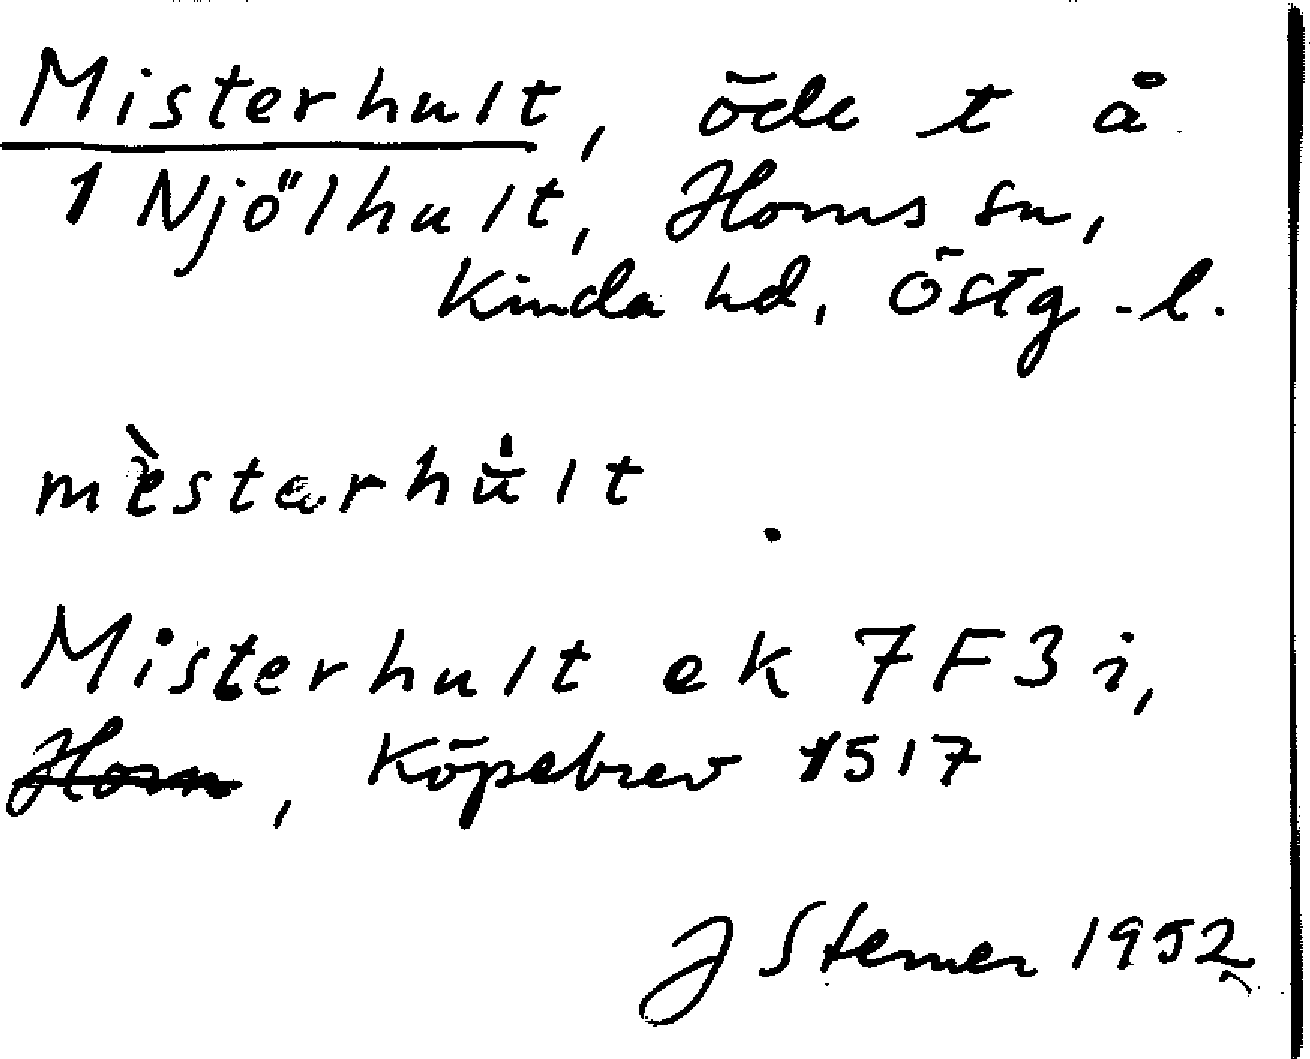 Misterhult, öde t å
1 Njölhult, Horns sn,
Kinda hd, Östg-l.
mèstərhu̇̀lt.
Misterhult ek 7F3i,
Horn, Köpebrev 1517
J Sterner 1952